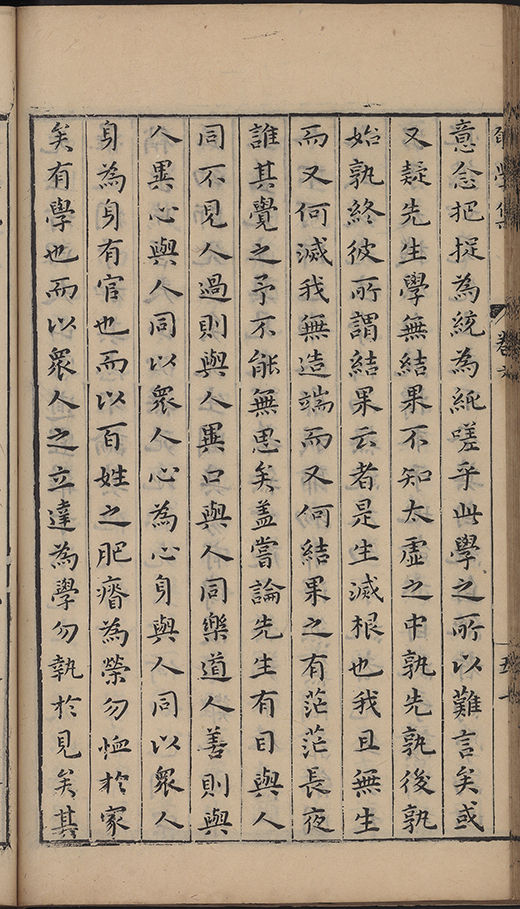 學集
卷
意念把捉為統為紕嗟乎此學之所以難言矣或
又疑先生學無結果不知太虛之中孰先孰後孰
始孰終彼所謂結果云者是生滅根也我且無生
而又何滅我無造端而又何結果之有茫茫長夜
誰其覺之予不能無思矣蓋嘗論先生有曰與人
同不見人過則與人異口與人同樂道人善則與
人異心與人同以衆人心為心身與人同以衆人
身為身有官也而以百姓之肥瘠為榮勿恤於家
矣有學也而以衆人之立達為學勿執於見矣其